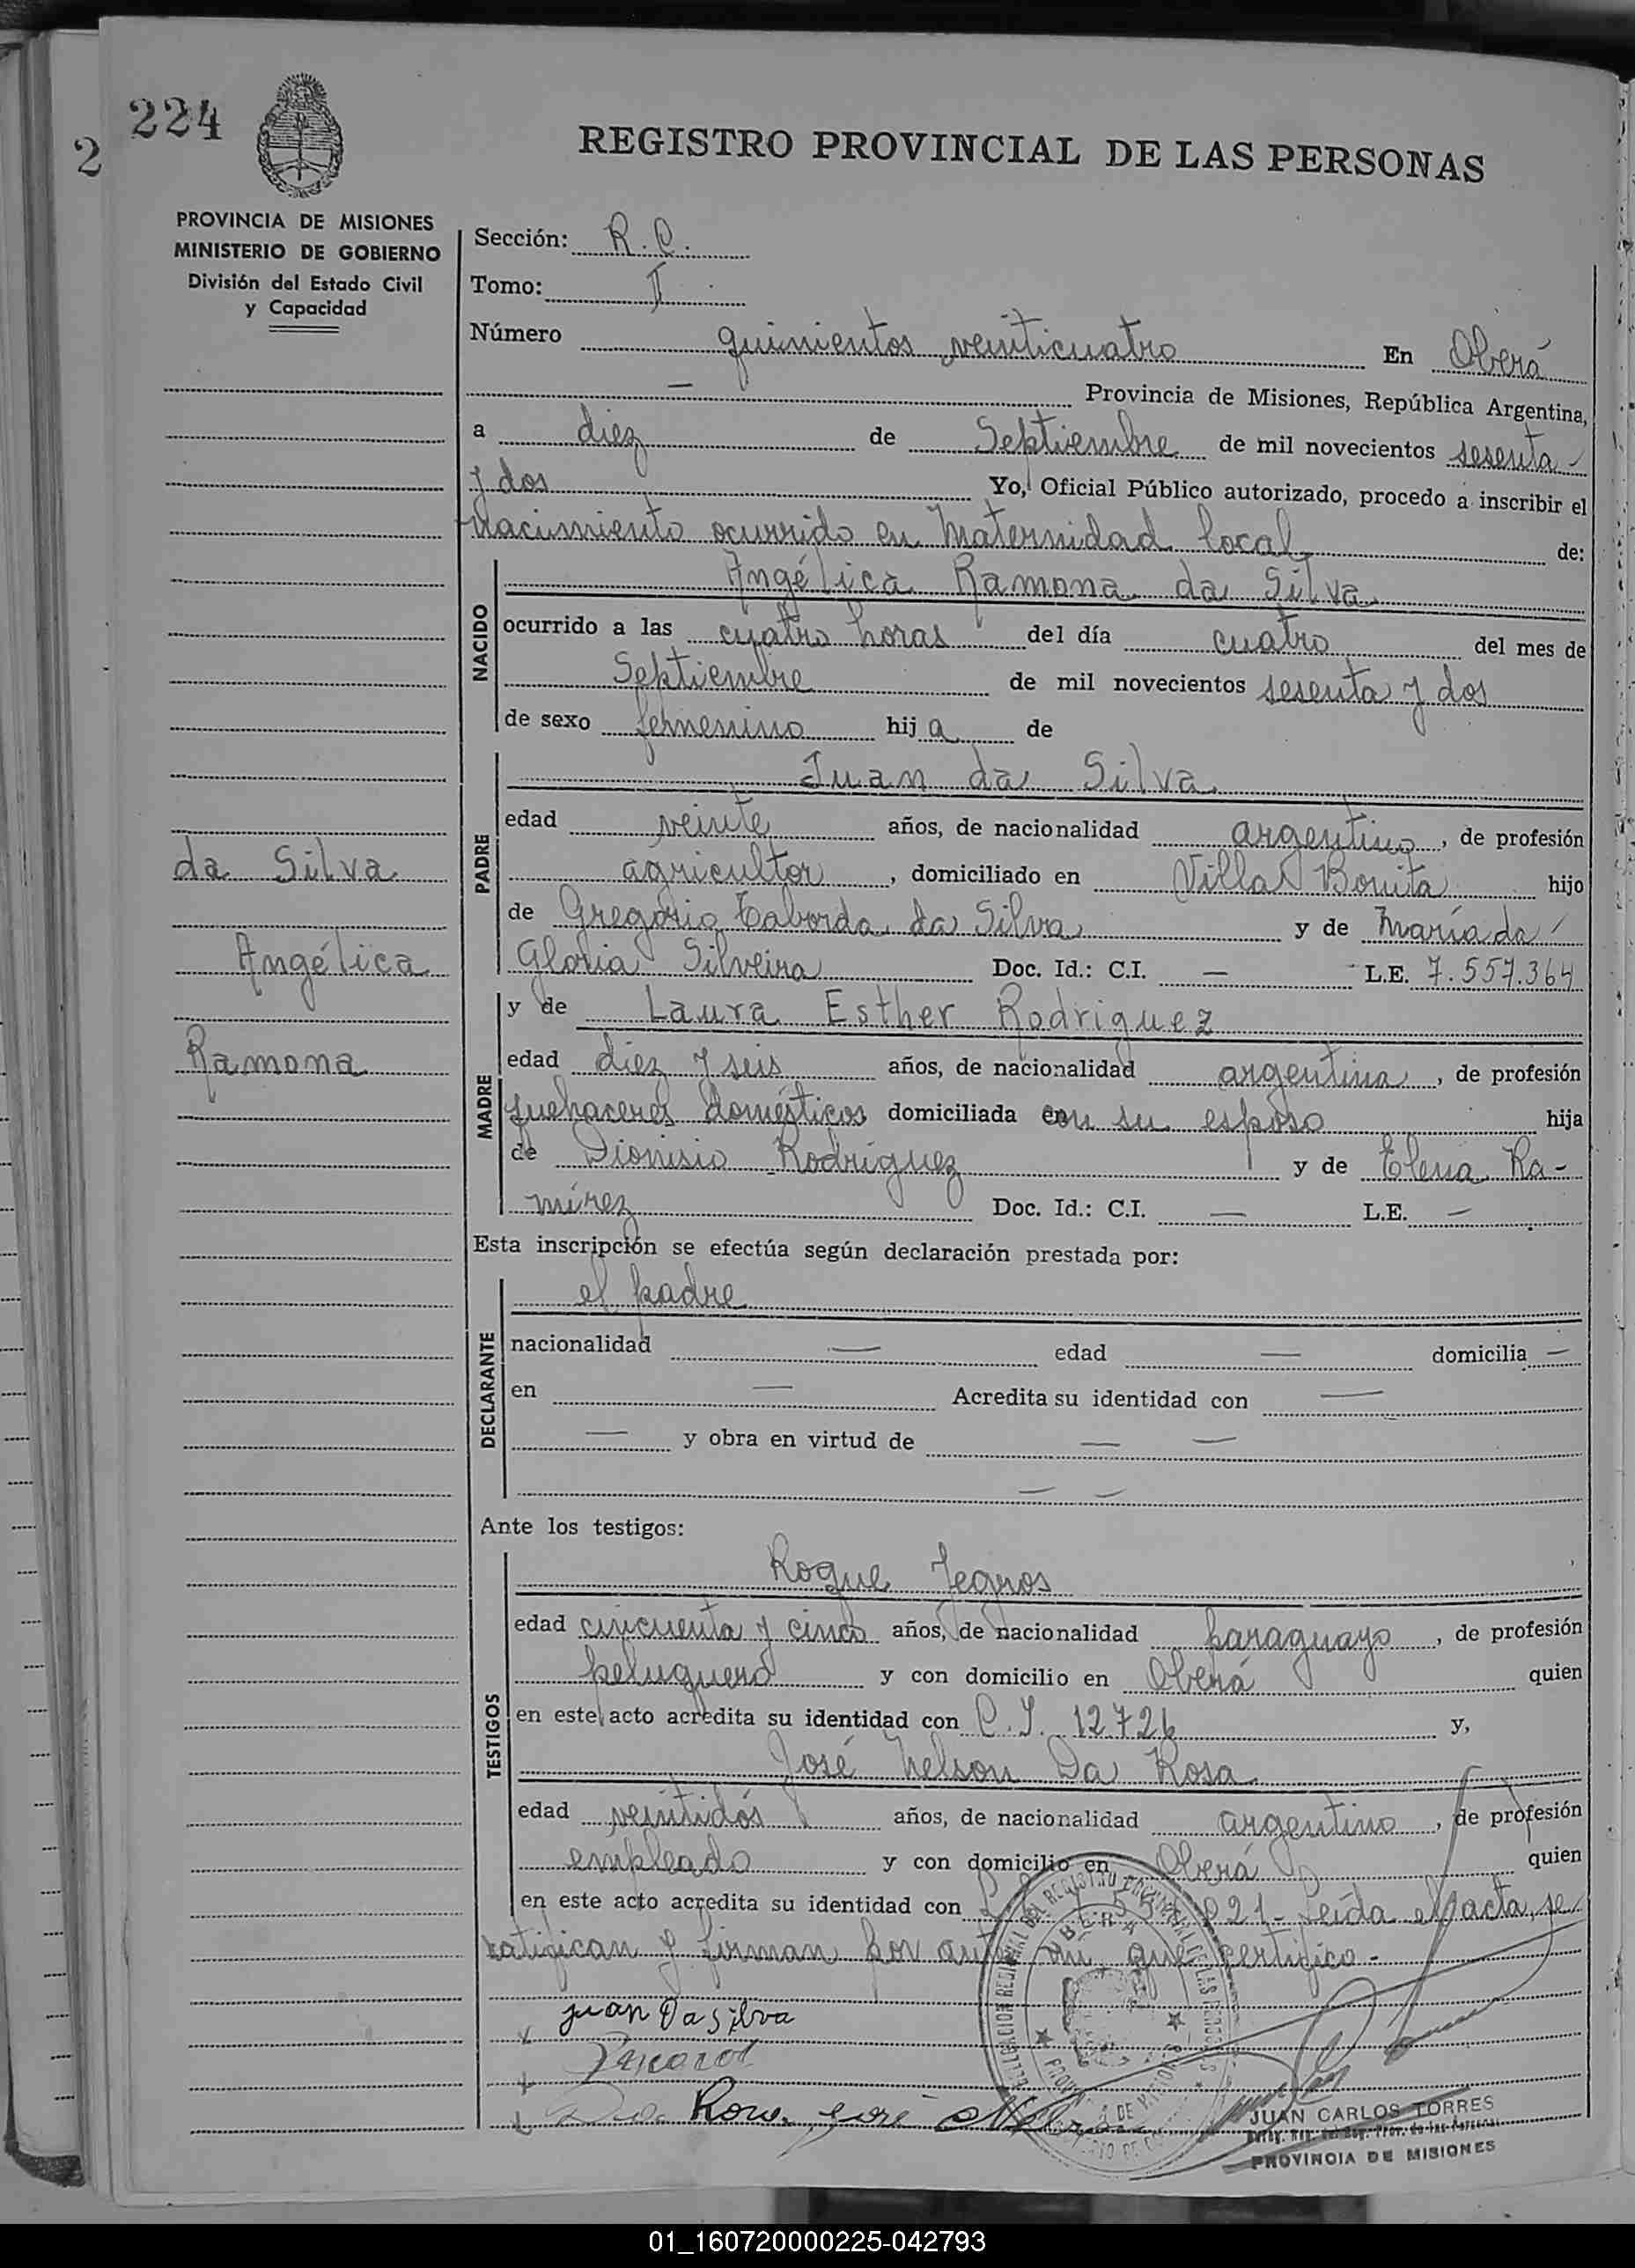 224
2
REGISTRO PROVINCIAL DE LAS PERSONAS
PROVINCIA DE MISIONES
MINISTERIO DE GOBIERNO
División del Estado Civil
y Capacidad
Sección: R. C.
Tomo: I
Número quinientos veinticuatro En Oberá
— Provincia de Misiones, República Argentina,
a diez de Septiembre de mil novecientos sesenta
y dos Yo, Oficial Público autorizado, procedo a inscribir el
nacimiento ocurrido en Maternidad local de:
NACIDO
Angélica Ramona da Silva
ocurrido a las cuatro horas del día cuatro del mes de
Septiembre de mil novecientos sesenta y dos
de sexo femenino hija de
PADRE
Juan da Silva
edad veinte años, de nacionalidad argentino, de profesión
agricultor, domiciliado en Villa Bonita hijo
de Gregorio Taborda da Silva y de María da
Gloria Silveira Doc. Id.: C.I. — L.E. 7.557.364
da Silva
Angélica
Ramona
MADRE
y de Laura Esther Rodriguez
edad diez y seis años, de nacionalidad argentina, de profesión
quehaceres domésticos domiciliada con su esposo hija
de Dionisio Rodríguez y de Elena Ra-
mírez Doc. Id.: C.I. — L.E. —
Esta inscripción se efectúa según declaración prestada por:
DECLARANTE
el padre
nacionalidad — edad — domicilia —
en — Acredita su identidad con —
— y obra en virtud de — —
— —
Ante los testigos:
TESTIGOS
Roque Yegros
edad cincuenta y cinco años, de nacionalidad paraguayo, de profesión
peluquero y con domicilio en Oberá quien
en este acto acredita su identidad con C.I. 12726 y,
José Nelson Da Rosa
edad veintidós años, de nacionalidad argentino, de profesión
empleado y con domicilio en Oberá quien
en este acto acredita su identidad con 021- Leída el acta, se
ratifican y firman por ante mí que certifico.-
Juan Da Silva
Rosa José Nelson
JUAN CARLOS TORRES
PROVINCIA DE MISIONES
01_160720000225-042793